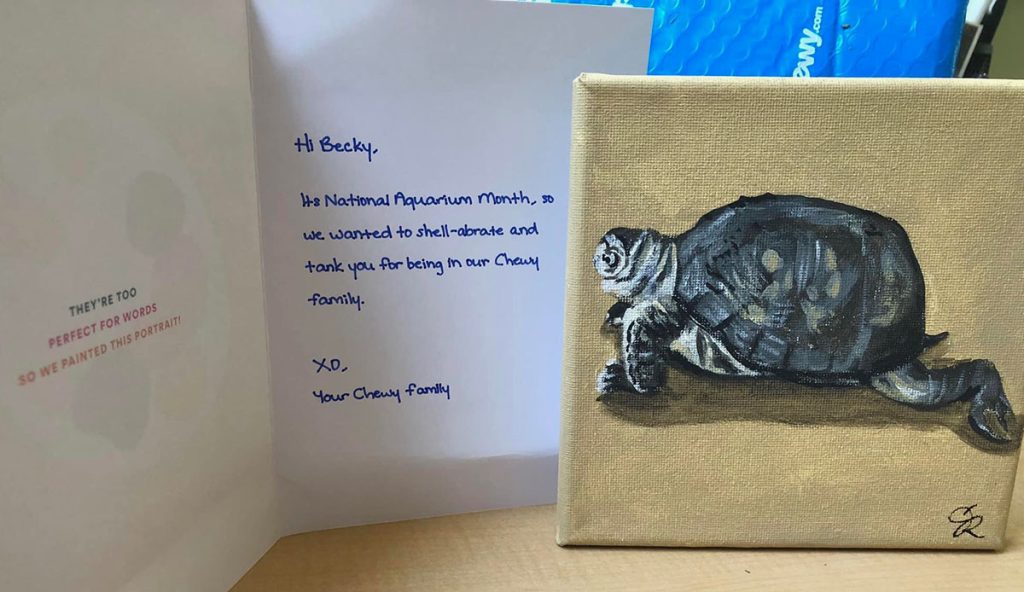 THEY'RE TOO
PERFECT FOR WORDS
SO WE PAINTED THIS PORTRAIT!
Hi Becky,
Its National Aquarium Month, so
we wanted to shell-abrate and
tank you for being in our Chewy
family.
XO,
Your Chewy family
ewy.com